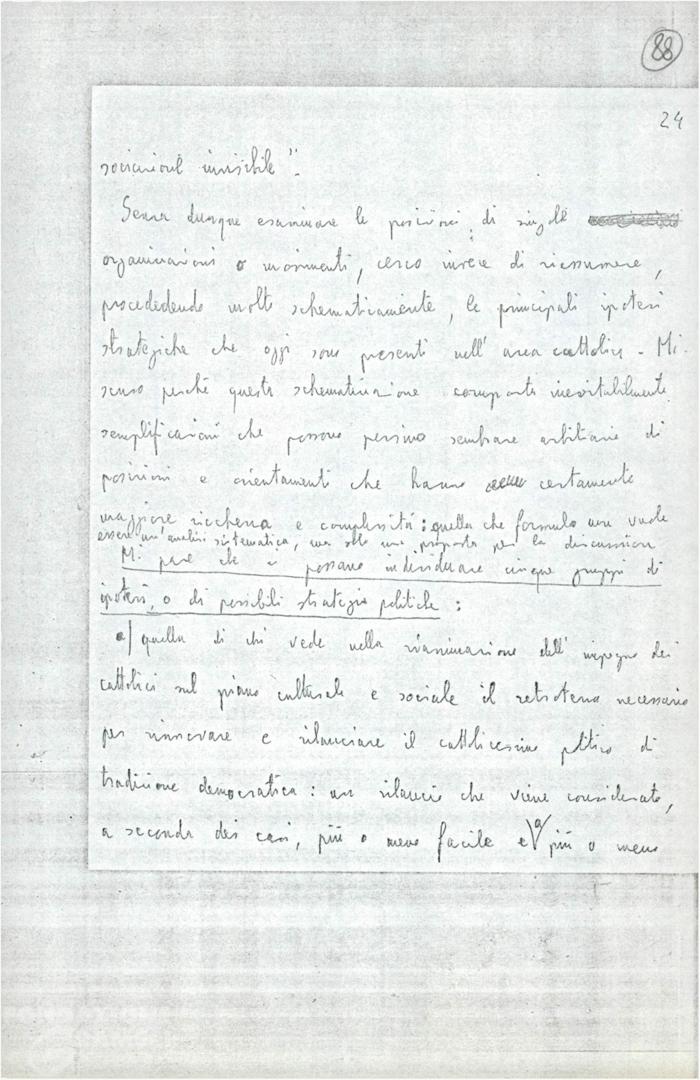 88
24
invisibile".
Senza dunque esaminare le posizioni di singole
organizzazioni o movimenti, cerco invece di riassumere,
procedendo molto schematicamente, le principali ipotesi
strategiche che oggi sono presenti nell'area cattolica - Mi
scuso perché questa schematizzazione comporta inevitabilmente
semplificazioni che possono persino sembrare arbitrarie di
posizioni e orientamenti che hanno certamente
maggiore ricchezza e complessità: quella che formulo non vuole
essere un'analisi sistematica, ma solo una proposta per la discussione
Mi pare che si possano individuare cinque gruppi di
ipotesi, o di possibili strategie politiche:
a) quella di chi vede nella rianimazione dell'impegno dei
cattolici sul piano culturale e sociale il retroterra necessario
per rinnovare e rilanciare il cattolicesimo politico di
tradizione democratica: un rilancio che viene considerato,
a seconda dei casi, più o meno facile e a più o meno